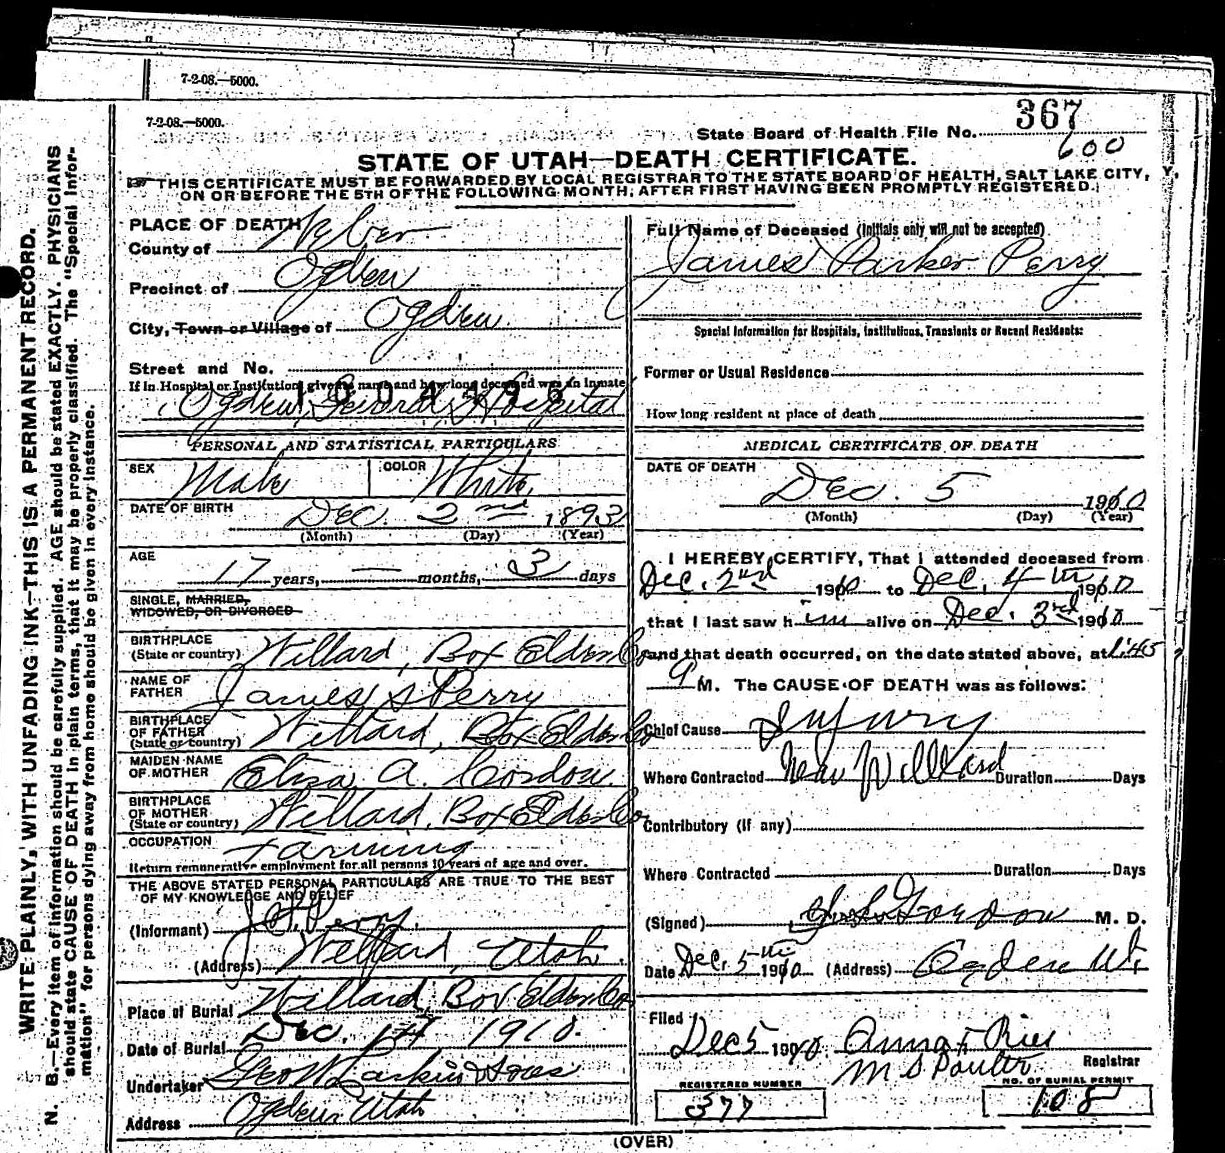 7-2-08.—5000.
7-2-08.—5000.
State Board of Health File No. 367
600
STATE OF UTAH—DEATH CERTIFICATE.
THIS CERTIFICATE MUST BE FORWARDED BY LOCAL REGISTRAR TO THE STATE BOARD OF HEALTH, SALT LAKE CITY,
ON OR BEFORE THE 5TH OF THE FOLLOWING MONTH, AFTER FIRST HAVING BEEN PROMPTLY REGISTERED.
WRITE PLAINLY, WITH UNFADING INK—THIS IS A PERMANENT RECORD.
N. B.—Every item of information should be carefully supplied. AGE should be stated EXACTLY. PHYSICIANS
should state CAUSE OF DEATH in plain terms, that it may be properly classified. The "Special Infor-
mation" for persons dying away from home should be given in every instance.
PLACE OF DEATH
County of Weber
Precinct of Ogden
City, Town or Village of Ogden
Street and No.
If in Hospital or Institution, give its name and how long deceased was an inmate
1004496
Ogden General Hospital
PERSONAL AND STATISTICAL PARTICULARS
SEX Male COLOR White
DATE OF BIRTH Dec. 2nd 1893
(Month) (Day) (Year)
AGE
17 years, — months, 3 days
SINGLE, MARRIED,
WIDOWED, OR DIVORCED
BIRTHPLACE
(State or country) Willard, Box Elder Co
NAME OF
FATHER James S Perry
BIRTHPLACE
OF FATHER
(State or country) Willard, Box Elder Co
MAIDEN NAME
OF MOTHER Eliza A. Cordon
BIRTHPLACE
OF MOTHER
(State or country) Willard, Box Elder Co
OCCUPATION Farming
Return remunerative employment for all persons 10 years of age and over.
THE ABOVE STATED PERSONAL PARTICULARS ARE TRUE TO THE BEST
OF MY KNOWLEDGE AND BELIEF
(Informant) Perry
(Address) Willard, Utah.
Place of Burial Willard, Box Elder Co
Date of Burial Dec. 1910.
Undertaker Larkin & Sons
Address Ogden Utah
Full Name of Deceased (Initials only will not be accepted)
James Parker Perry
Special Information for Hospitals, Institutions, Transients or Recent Residents:
Former or Usual Residence
How long resident at place of death
MEDICAL CERTIFICATE OF DEATH
DATE OF DEATH
Dec. 5 1910
(Month) (Day) (Year)
I HEREBY CERTIFY, That I attended deceased from
Dec. 2nd 1910 to Dec. 4th 1910
that I last saw him alive on Dec. 3rd 1910
and that death occurred, on the date stated above, at 1:45
a M. The CAUSE OF DEATH was as follows:
Chief Cause Injury
Where Contracted Near Willard Duration Days
Contributory (if any)
Where Contracted Duration Days
(Signed) Gordon M. D.
Date Dec. 5th 1910 (Address) Ogden Ut
Filed
Dec 5 1910 Anna F Ries
M S Poulter Registrar
REGISTERED NUMBER
377
NO. OF BURIAL PERMIT
108
(OVER)